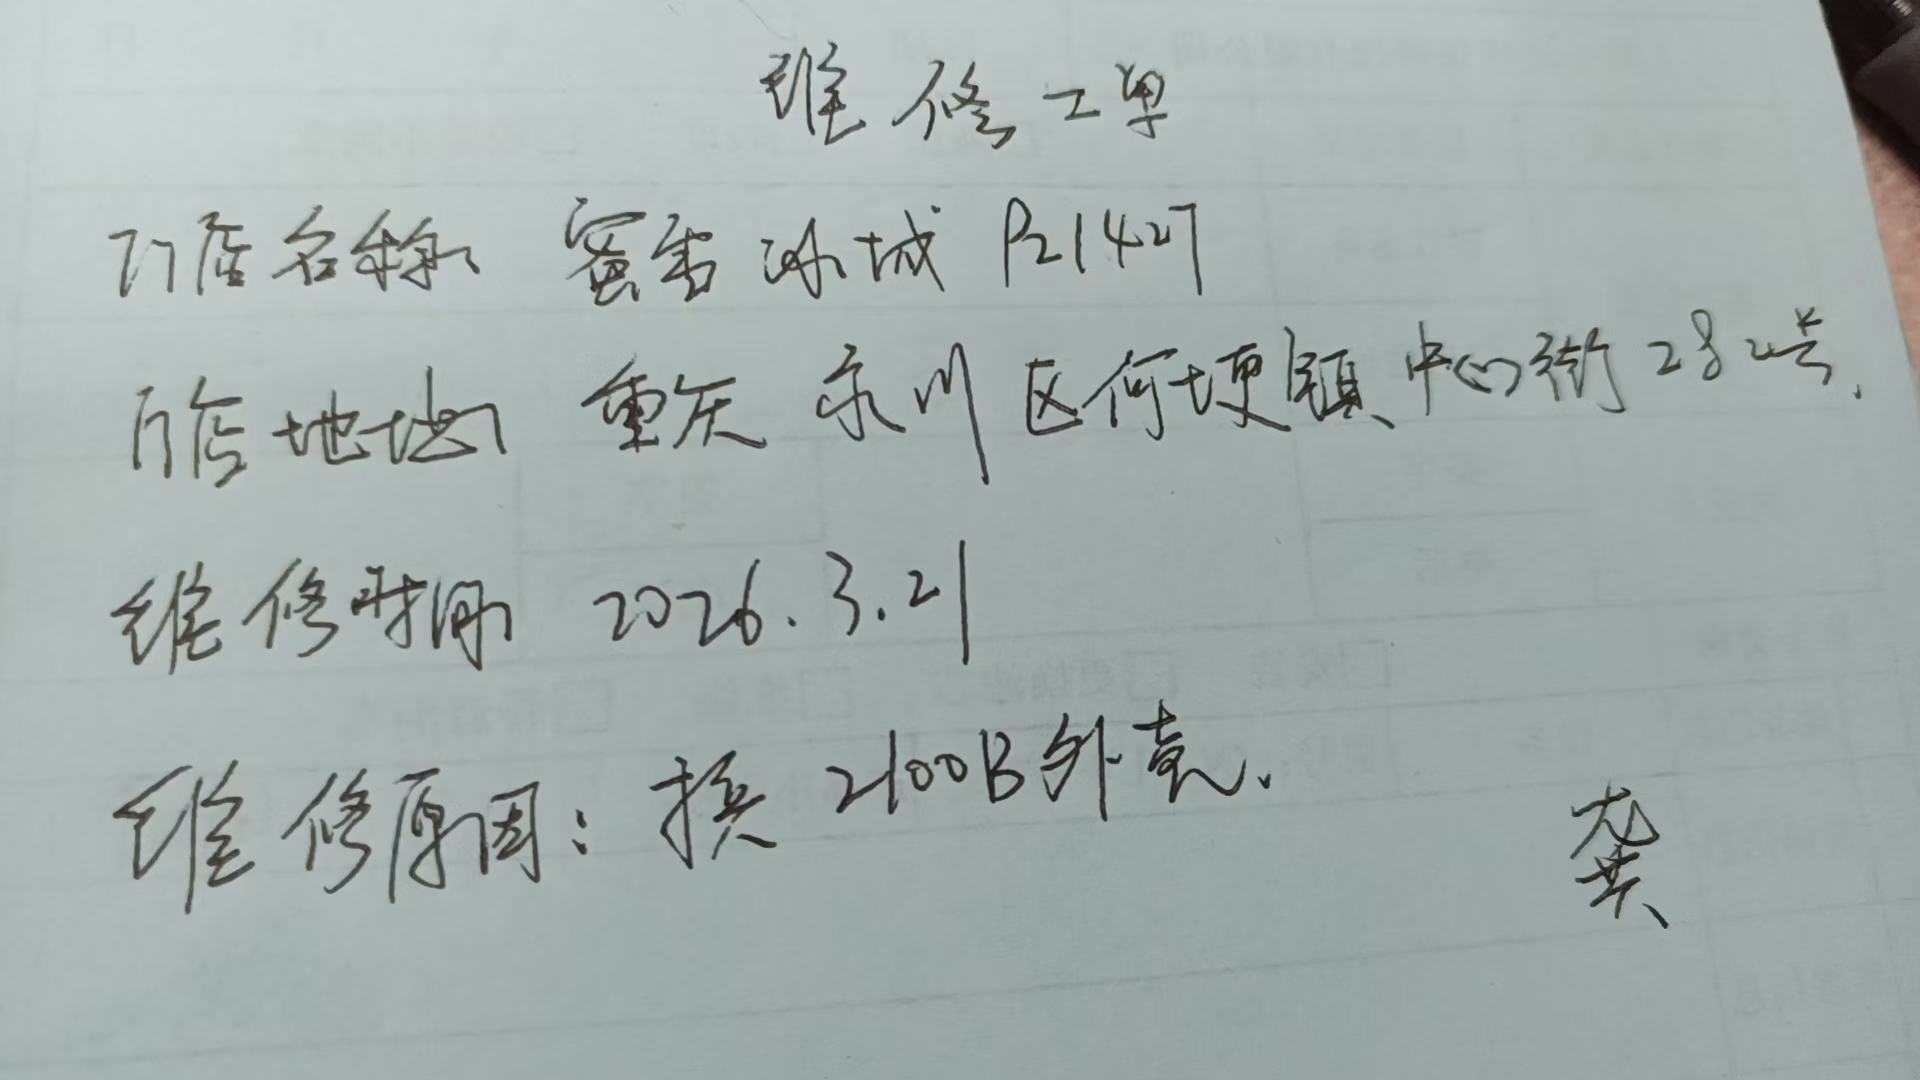 维修工单
门店名称 蜜雪冰城 P21427
门店地址 重庆永川区何埂镇中心街282号.
维修时间 2026.3.21
维修原因：换2100B外壳.
龚